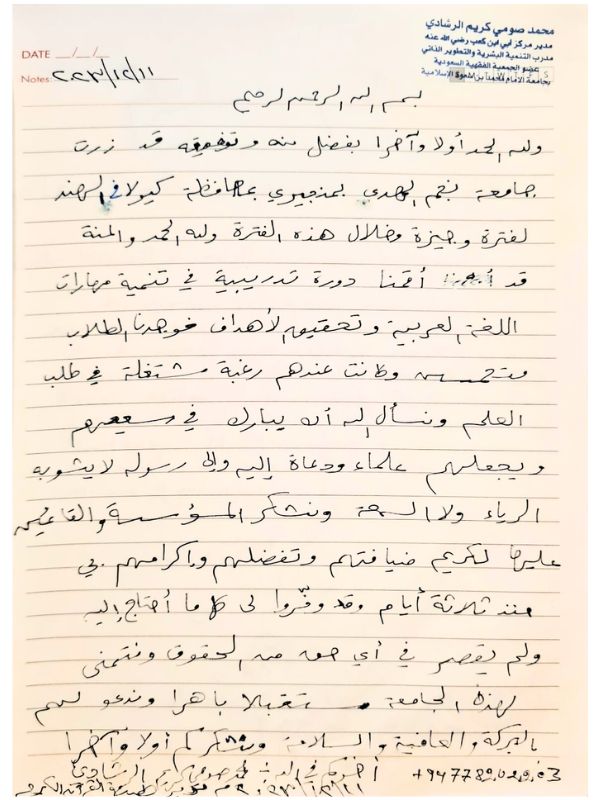 محمد صومي كريم الرشادي
مدير مركز أبي ابن كعب رضي الله عنه
مدرب التنمية البشرية والتطوير الذاتي
عضو الجمعية الفقهية السعودية
بجامعة الإمام محمد بن سعود الإسلامية
DATE __/__/__
Notes: ٢٠٢٣/١٢/١١
بسم الله الرحمن الرحيم
ولله الحمد أولا وآخرا بفضل منه وتوفيقه قد زرت
جامعة نجم الهدى بمنجيري بمحافظة كيرلا في الهند
لفترة وجيزة وخلال هذه الفترة ولله الحمد والمنة
قد أقمنا دورة تدريبية في تنمية مهارات
اللغة العربية وتحقيق الأهداف فوجدنا الطلاب
متحمسين وكانت عندهم رغبة مشتغلة في طلب
العلم ونسأل الله أن يبارك في سعيهم
ويجعلهم علماء ودعاة إليه وإلى رسوله لا يشوبه
الرياء ولا السمعة ونشكر المؤسسة والقائمين
عليها لكريم ضيافتهم وتفضلهم وإكرامهم بي
منذ ثلاثة أيام وقد وفّروا لي كل ما أحتاج إليه
ولم يقصر في أي حق من الحقوق ونتمنى
لهذه الجامعة مستقبلا باهرا وندعو لهم
بالبركة والعافية والسلامة ونشكركم أولا وآخرا
أخوكم في الله محمد صومي كريم الرشادي